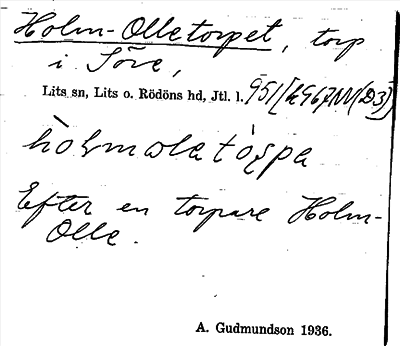 Holm-Olletorpet, torp
i Söre,
Lits sn, Lits o. Rödöns hd, Jtl. l. 951
hòʜmɷla tós̩pa
Efter en torpare Holm-
Olle.
A. Gudmundson 1936.